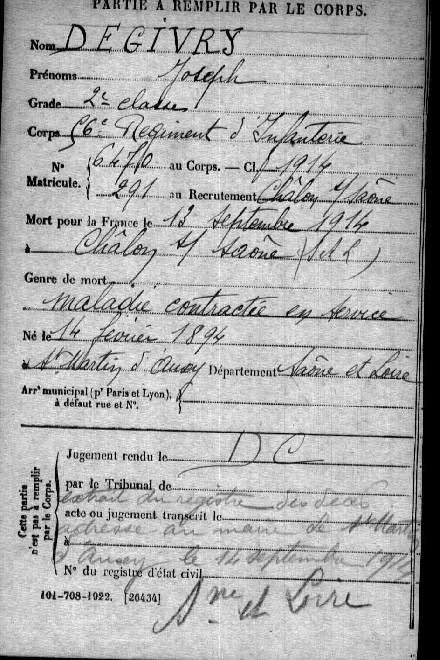 PARTIE À REMPLIR PAR LE CORPS.
Nom DEGIVRY
Prénoms Joseph
Grade 2e classe
Corps 56e Régiment d'Infanterie
N° 6470 au Corps. — Cl. 1914
Matricule. 291 au Recrutement Châlon s/ Saône
Mort pour la France le 13 septembre 1914
à Châlon s/ Saône (S et L)
Genre de mort
maladie contractée en service
Né le 14 février 1894
à St Martin d'Auxy Département Saône et Loire
Arrt municipal (pr Paris et Lyon),
à défaut rue et N°.
Cette partie n'est pas à remplir par le Corps.
Jugement rendu le D C
par le Tribunal de
extrait du registre des décès
acte ou jugement transcrit le
adressé au maire de St Martin
à
d'Auxy le 14 septembre 1914
N° du registre d'état civil
Sne et Loire
101-708-1922. [26434]